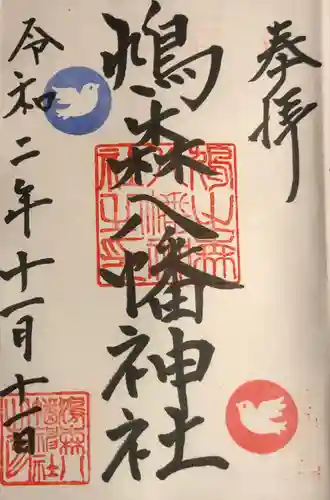 奉拝
嶋森八幡神社
令和二年十一月十一日